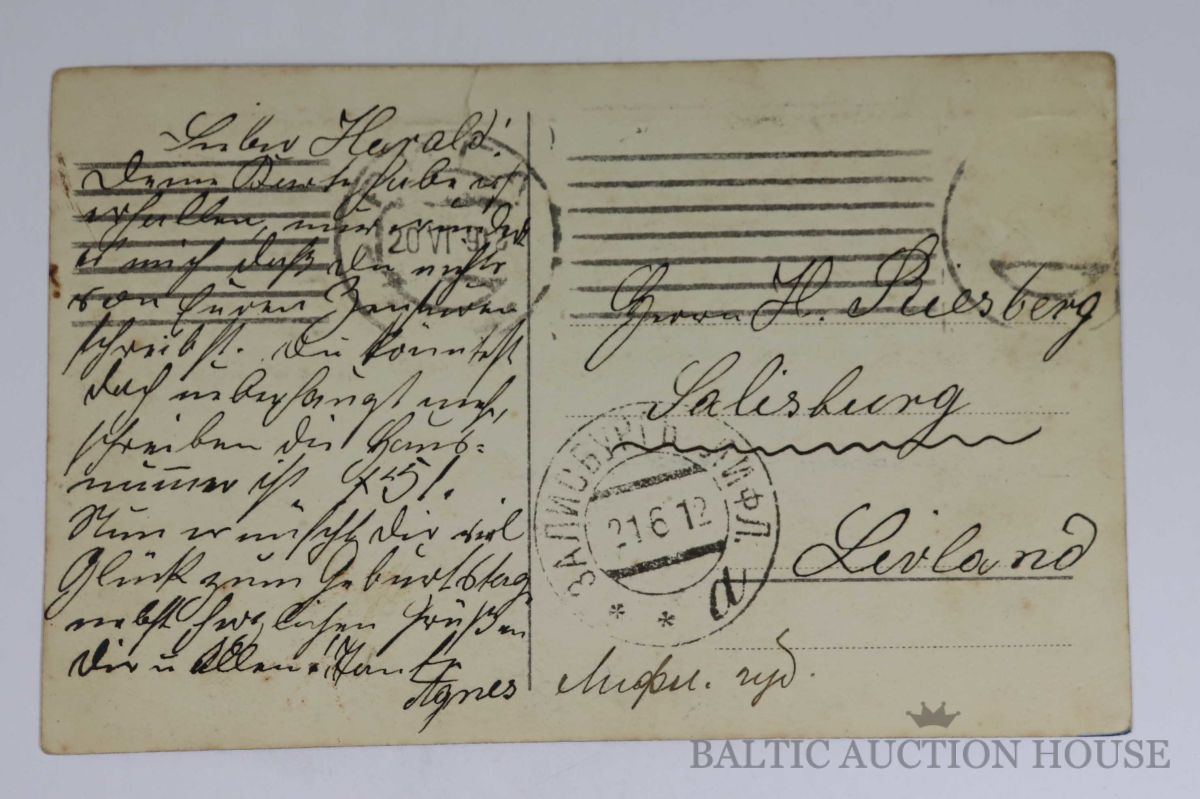 Lieber Harald!
Deine Karte habe ich
erhalten, nur wundert
es mich daß Du nichts
von Euren Zensuren
schreibst. Du könntest
doch überhaupt mehr
schreiben die Haus-
nummer ist 45!
Nun wünscht Dir viel
Glück zum Geburtstag
nebst herzlichen Grüßen
Dir u Allen! Tante
Agnes
20 VI
Herrn H. Riesberg
Salisburg
Livland
ЗАЛИСБУРГЪ ЛИФЛ.
21 6 12
а
Лифл. губ.
BALTIC AUCTION HOUSE